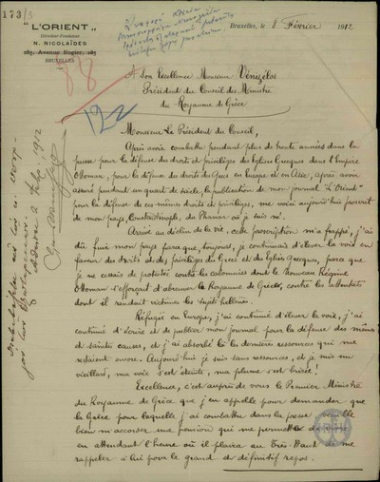 173/5
"L'ORIENT"
Directeur-Fondateur
N. NICOLAÏDES
BRUXELLES
Bruxelles, le 8 Février 1912
88
A Son Excellence Monsieur Vénizelos
Président du Conseil des Ministres
du Royaume de Grèce
Monsieur Le Président du Conseil,
Après avoir combattu pendant plus de trente années dans la
presse pour la défense des droits et privilèges des Eglises Grecques dans l'Empire
Ottoman, pour la défense des droits des Grecs en Europe et en Asie, après avoir
assuré pendant un quart de siècle la publication de mon journal "L'Orient"
pour la défense de ces mêmes droits et privilèges, me voici aujourd'hui proscrit de
mon pays, Constantinople, du Phanar où je suis né.
Arrivé au déclin de la vie, cette proscription m'a frappé, j'ai
dû fuir mon pays parce que, toujours, je continuais d'élever la voix en
faveur des droits et des privilèges du Grec et des Eglises Grecques, parce
que je ne cessais de protester contre les calomnies dont le Nouveau Régime
Ottoman s'efforçait d'abreuver le Royaume de Grèce, contre les attentats
dont il rendait victimes les sujets hellènes.
Réfugié en Europe, j'ai continué d'élever la voix, j'ai
continué d'écrire et de publier mon journal pour la défense des mêmes
et saintes causes, et j'ai absorbé là les dernières ressources qui me
restaient encore. Aujourd'hui je suis sans ressources, et je suis un
vieillard, ma voix s'est éteinte, ma plume est brisée!
Excellence, c'est auprès de vous le Premier Ministre
du Royaume de Grèce que j'en appelle pour demander que
la Grèce pour laquelle j'ai combattu dans la presse veuille
bien m'accorder une pension qui me permette de
en attendant l'heure où il plaira au Très-Haut de me
rappeler à Lui pour le grand et définitif repos.